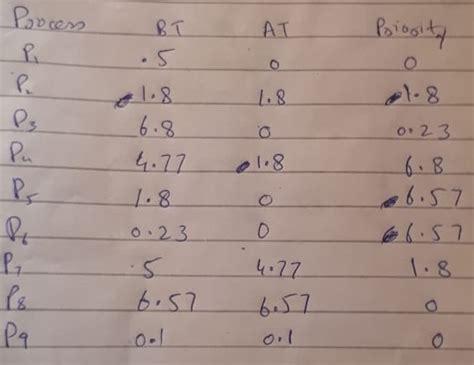 Process BT AT Priority
P1 .5 0 0
P2 1.8 1.8 1.8
P3 6.8 0 0.23
P4 4.77 1.8 6.8
P5 1.8 0 6.57
P6 0.23 0 6.57
P7 .5 4.77 1.8
P8 6.57 6.57 0
P9 0.1 0.1 0